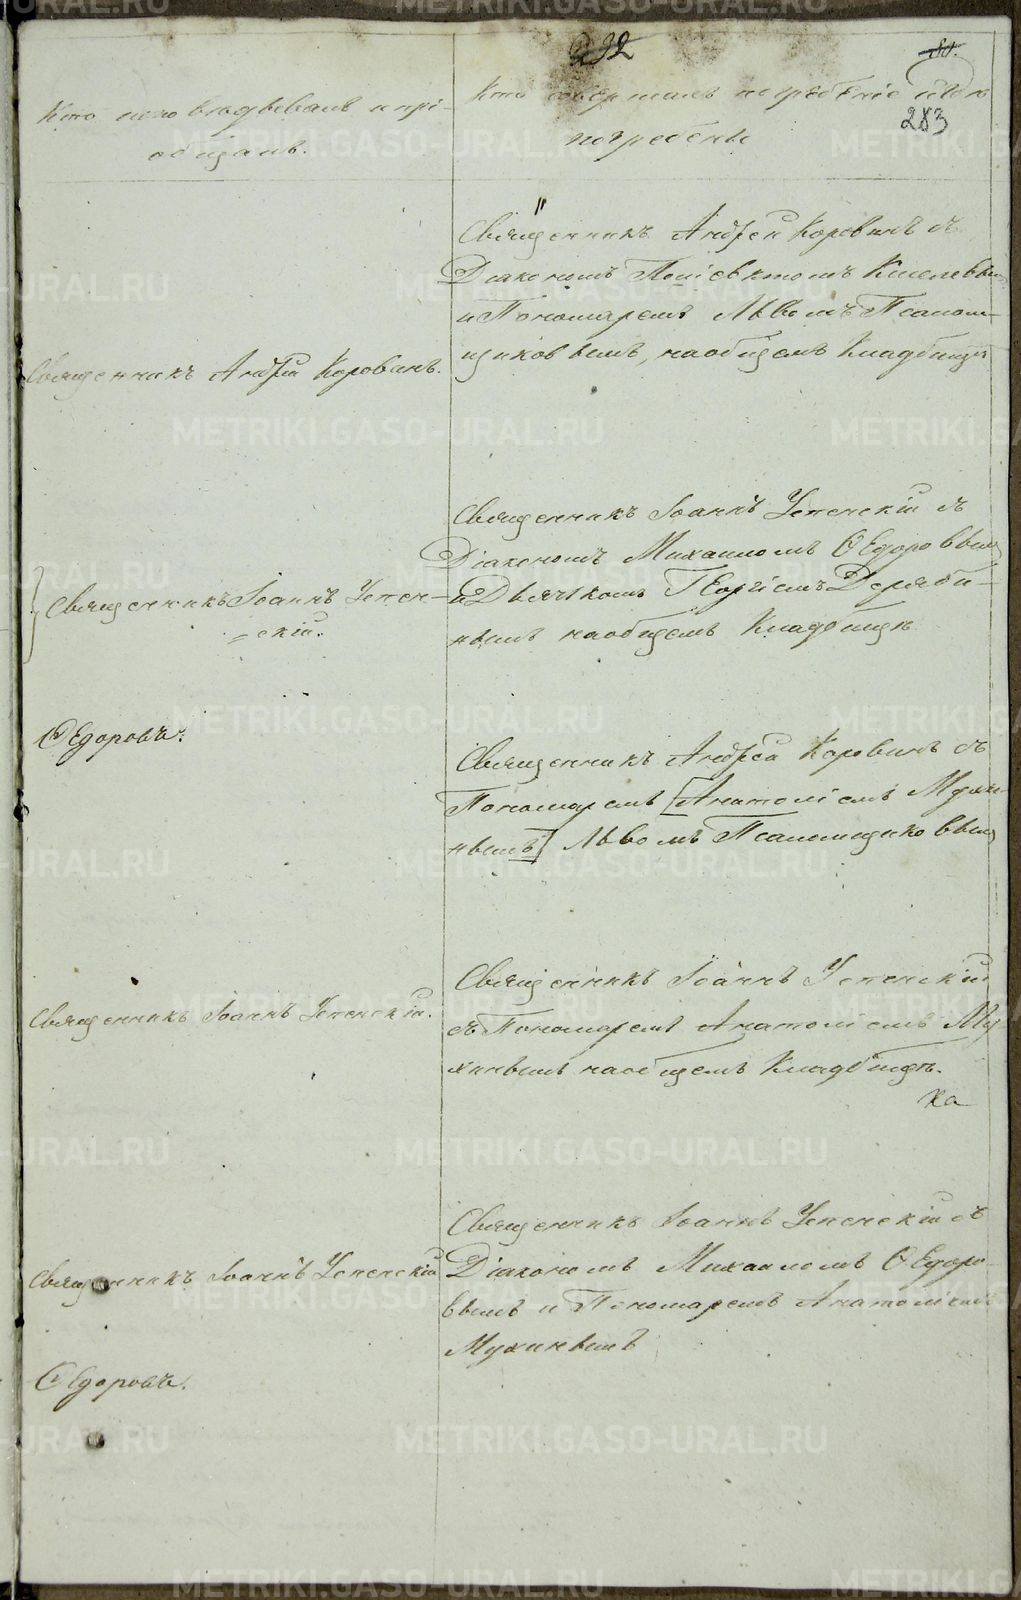 292
283
Кто исповѣдывалъ и прі-
общалъ.
Кто совершалъ погребеніе и гдѣ
погребены
Священникъ Андрей Коровинъ.
Священникъ Андрей Коровинъ съ
Діакономъ Поліевктомъ Киселевым
и Пономаремъ Львомъ Псалом-
щиковымъ, на общемъ Кладбищѣ
Священникъ Іоаннъ Успен-
=скій.
Священникъ Іоаннъ Успенскій съ
Діакономъ Михаиломъ Ѳедороввым
и Дьячкомъ Георгіемъ Деряби-
нымъ на общемъ Кладбищѣ
Ѳедоровъ.
Священникъ Андрей Коровинъ съ
Пономаремъ [Анатоліемъ Мухи-
нымъ] Львомъ Псаломщиковвым
Священникъ Іоаннъ Успенскій.
Священникъ Іоаннъ Успенскій
съ Пономаремъ Анатоліемъ Му-
хинымъ на общемъ Кладбищѣ.
Священникъ Іоаннъ Успенскій
Священникъ Іоаннъ Успенскій съ
Діакономъ Михаиломъ Ѳедоро-
вымъ и Пономаремъ Анатоліемъ
Мухинымъ
Ѳедоровъ.
METRIKI.GASO-URAL.RU